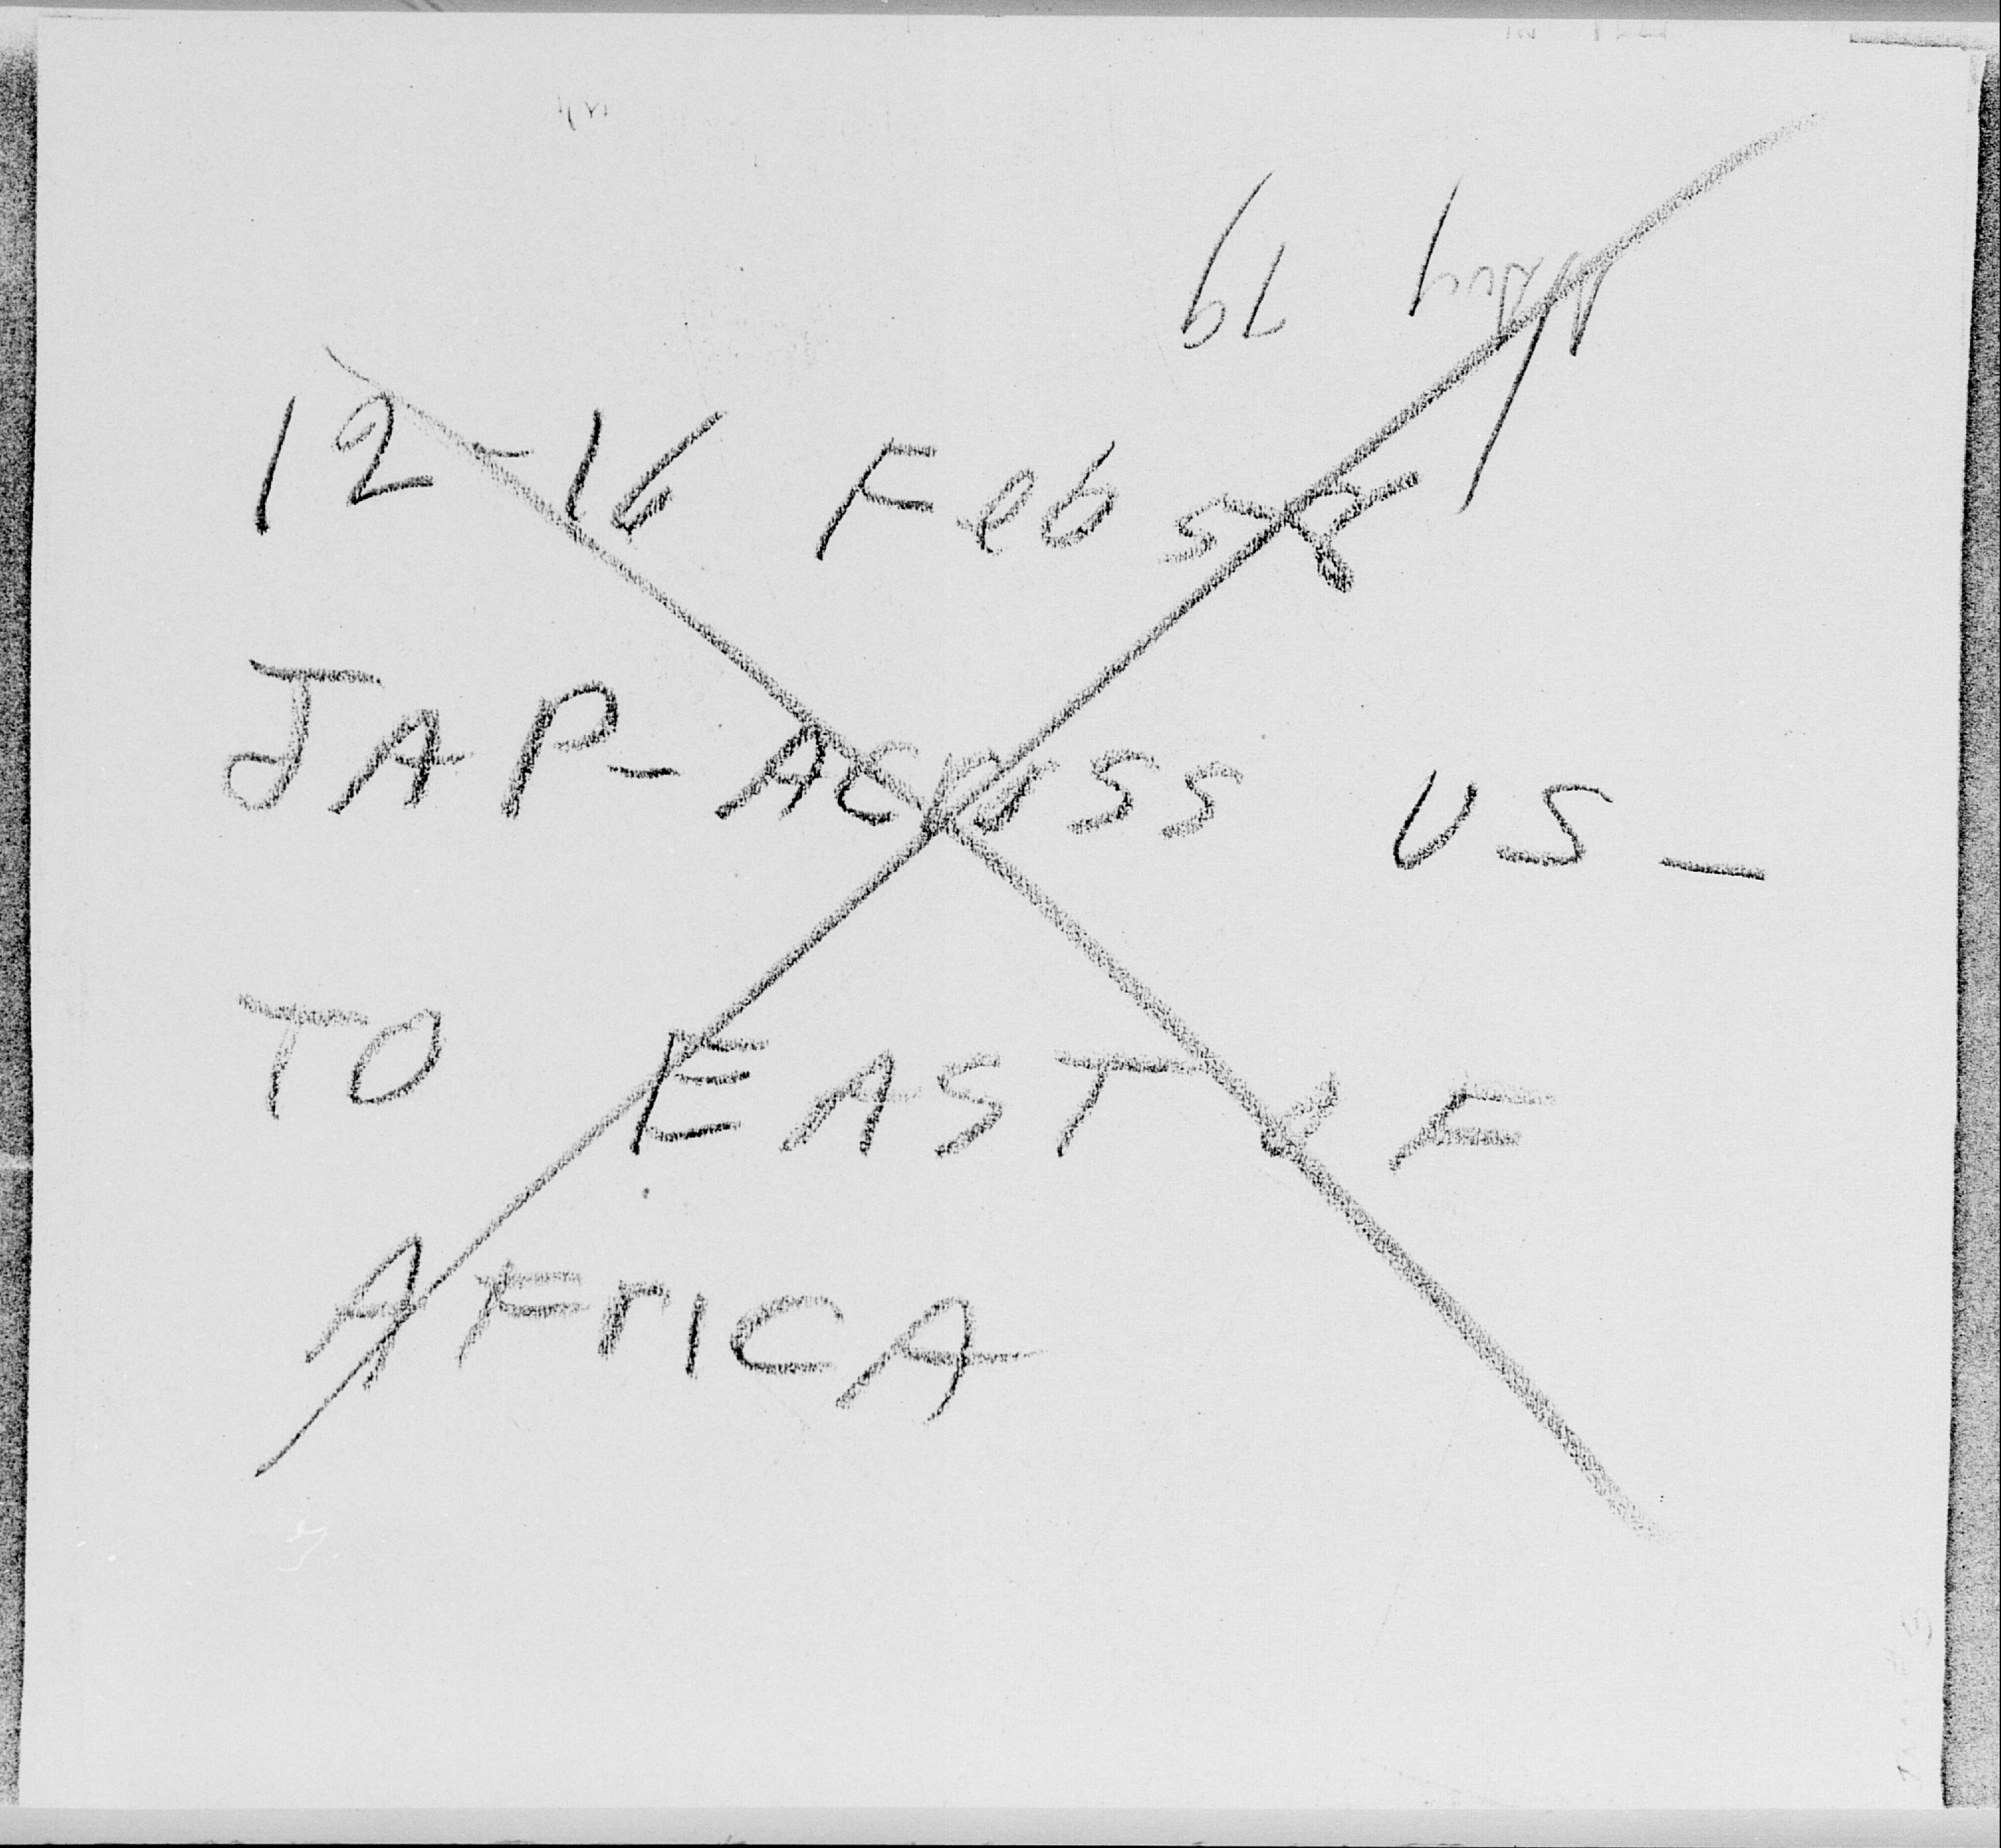 12-16 Feb 58
JAP- ACrOSS US -
TO EAST OF
AFrICA